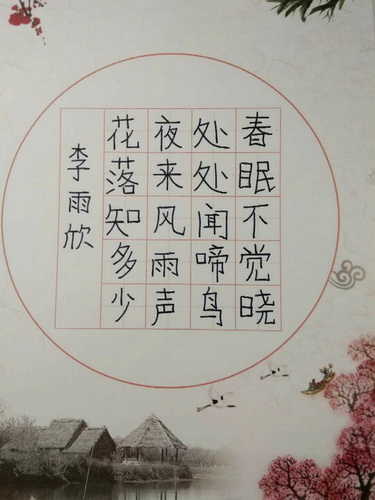 春眠不觉晓
处处闻啼鸟
夜来风雨声
花落知多少
李雨欣